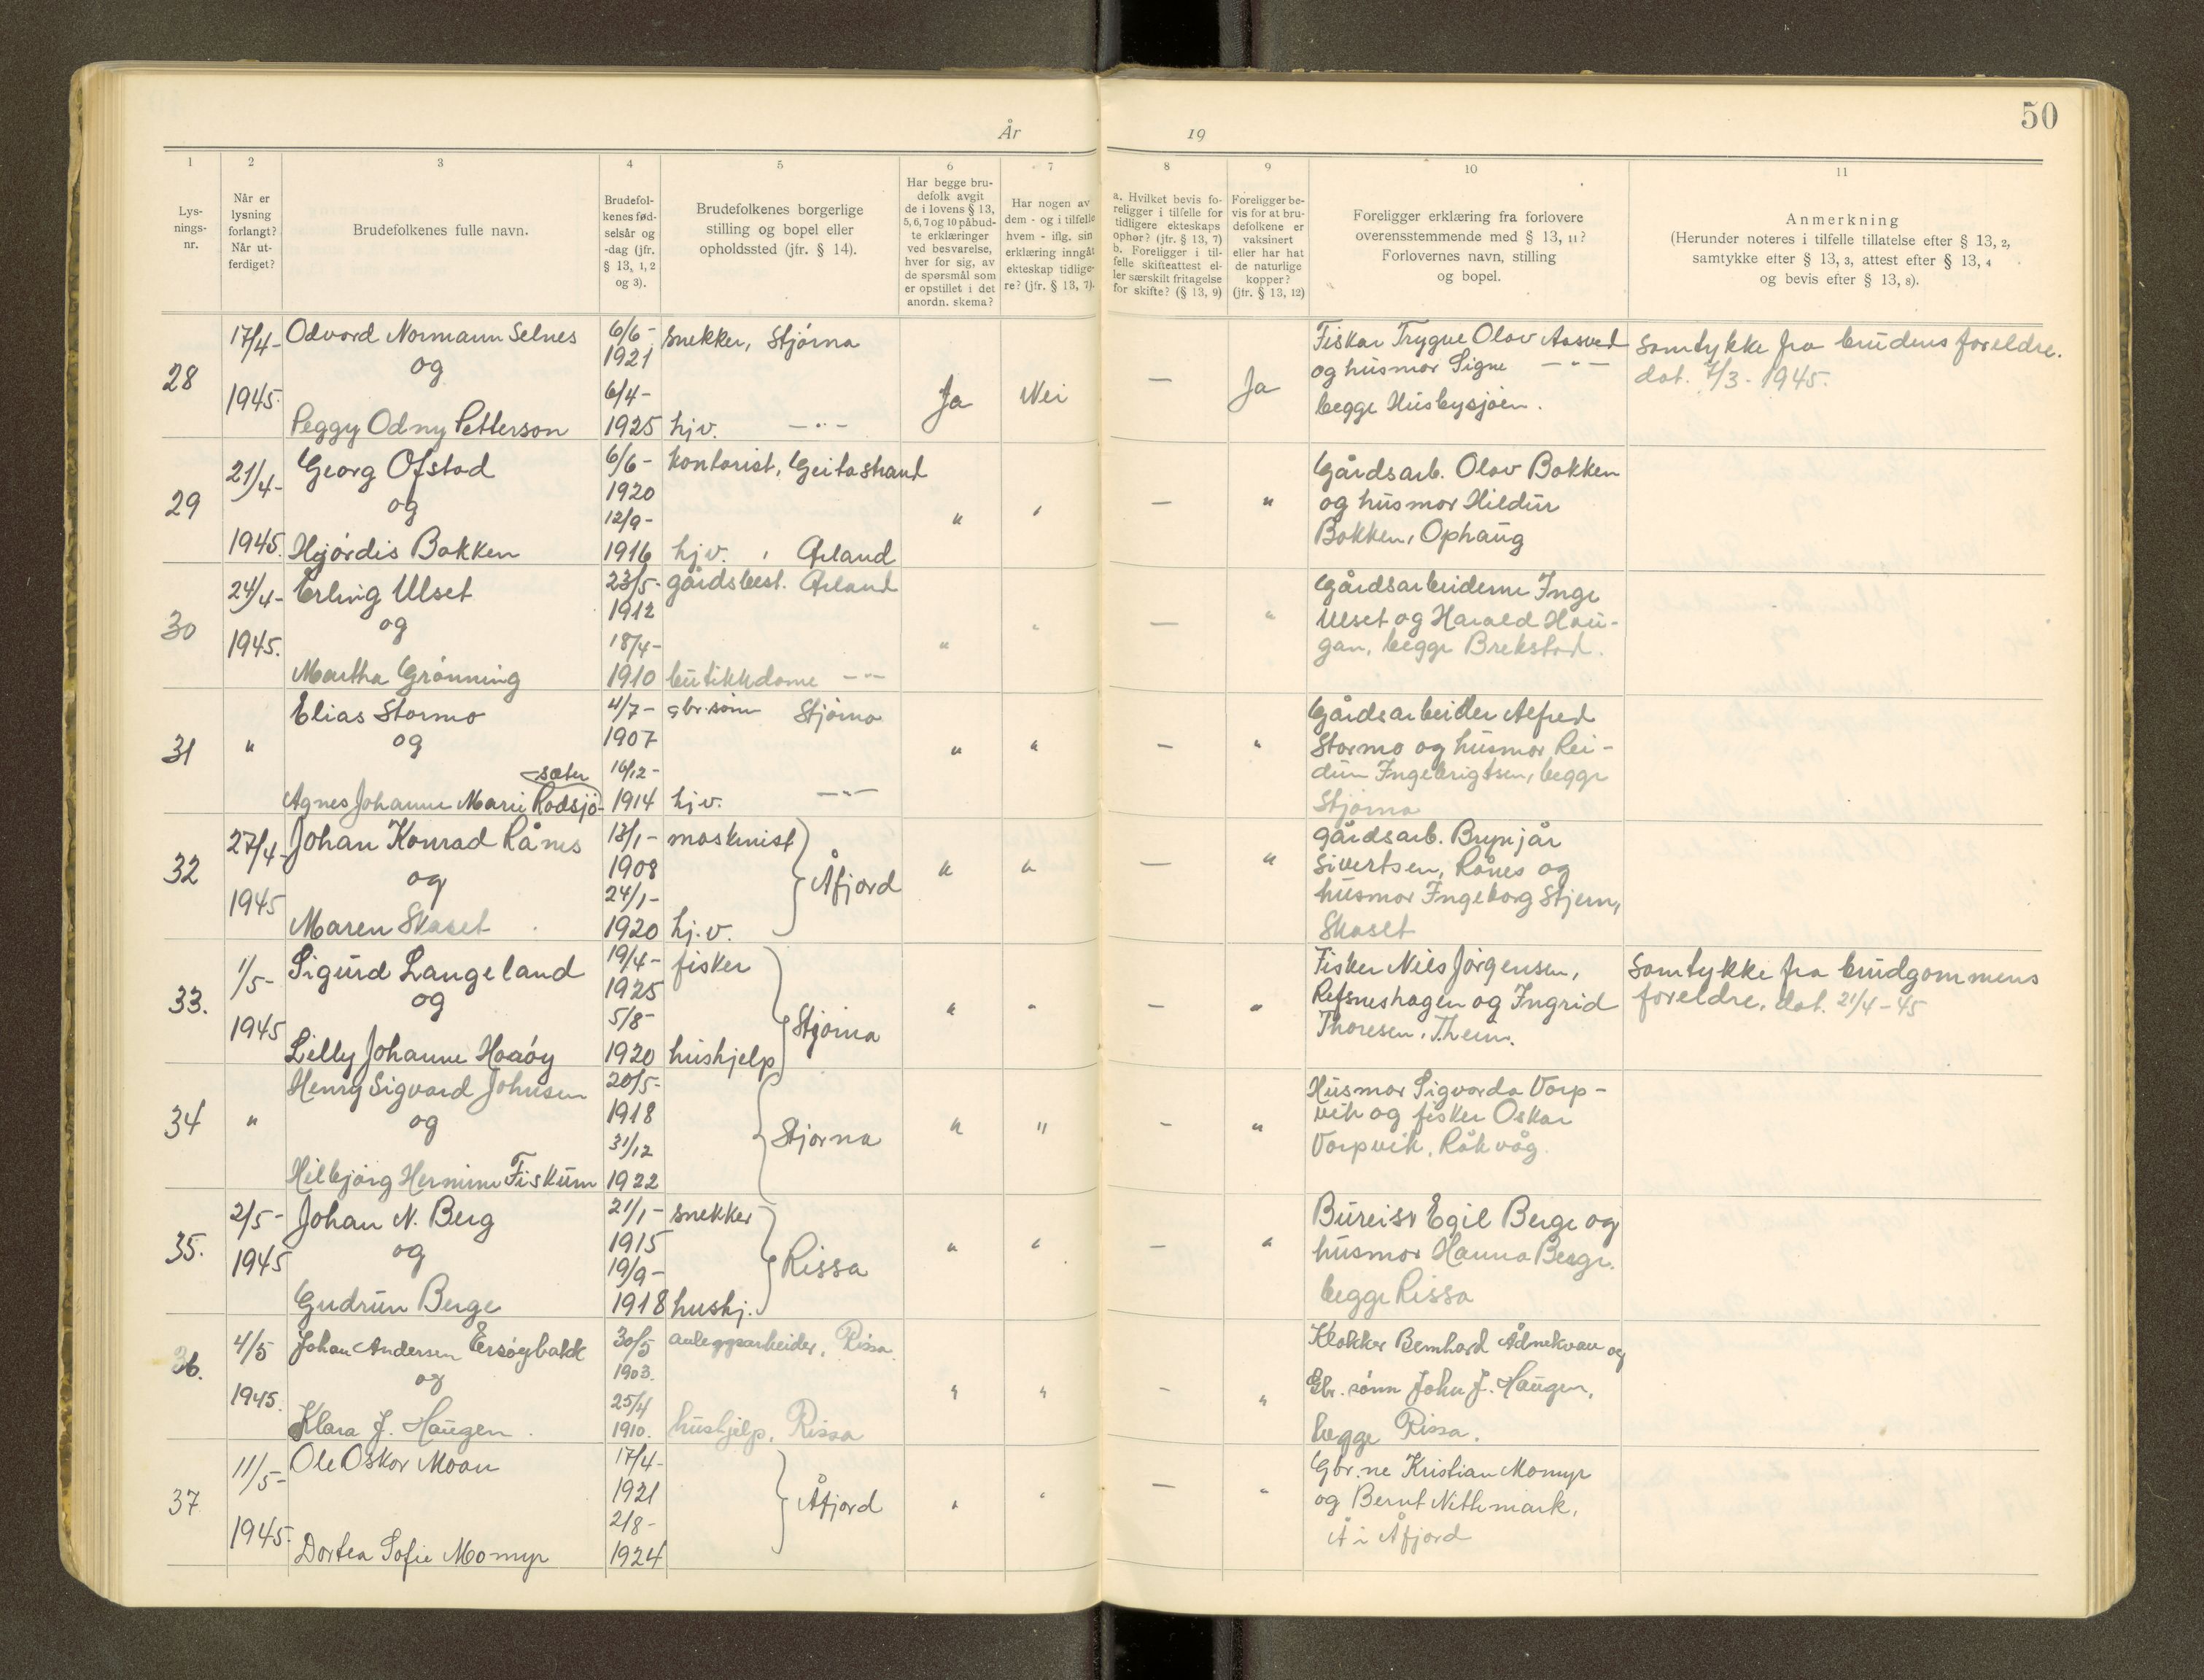 50
År
19
1
2
3
4
5
6
7
8
9
10
11
Lys-
nings-
nr.
Når er
lysning
forlangt?
Når ut-
ferdiget?
Brudefolkenes fulle navn.
Brudefol-
kenes fød-
selsår og
-dag (jfr.
§ 13, 1, 2
og 3).
Brudefolkenes borgerlige
stilling og bopel eller
opholdssted (jfr. § 14).
Har begge bru-
defolk avgit
de i lovens § 13,
5, 6, 7 og 10 påbud-
te erklæringer
ved besvarelse,
hver for sig, av
de spørsmål som
er opstillet i det
anordn. skema?
Har nogen av
dem - og i tilfelle
hvem - iflg. sin
erklæring inngåt
ekteskap tidlige-
re? (jfr. § 13, 7).
a. Hvilket bevis fo-
religger i tilfelle for
tidligere ekteskaps
ophør? (jfr. § 13, 7)
b. Foreligger i til-
felle skifteattest el-
ler særskilt fritagelse
for skifte? (§ 13, 9)
Foreligger be-
vis for at bru-
defolkene er
vaksinert
eller har hat
de naturlige
kopper?
(jfr. § 13, 12)
Foreligger erklæring fra forlovere
overensstemmende med § 13, 11?
Forlovernes navn, stilling
og bopel.
Anmerkning
(Herunder noteres i tilfelle tillatelse efter § 13, 2,
samtykke efter § 13, 3, attest efter § 13, 4
og bevis efter § 13, 8).
28
17/4-
1945.
Odvard Normann Selnes
og
Peggy Odny Petterson
6/6-
1921
6/4-
1925
snekker, Stjørna
hjv. —"—
Ja
Nei
—
Ja
Fisker Trygve Olav Aasved
og husmor Signe —"—
begge Husbysjøen.
Samtykke fra brudens foreldre.
dat. 7/3-1945.
29
21/4-
1945.
Georg Ofstad
og
Hjørdis Bakken
6/6-
1920
12/9-
1916
kontorist, Geitastrand
hjv. , Ørland
"
"
—
"
Gårdsarb. Olav Bakken
og husmor Hildur
Bakken, Ophaug
30
24/4-
1945.
Erling Ulset
og
Martha Grønning
23/5-
1912
18/4-
1910
gårdsbest. Ørland
butikkdame —"—
"
"
—
"
Gårdsarbeiderne Inge
Ulset og Harald Hau-
gan, begge Brekstad.
31
"
Elias Stormo
og
sæter
Agnes Johanne Marie Rødsjø-
4/7-
1907
16/12-
1914
gbr.sønn Stjørna
hjv. —"—
"
"
—
"
Gårdsarbeider Alfred
Stormo og husmor Rei-
dun Ingebrigtsen, begge
Stjørna
32
27/4-
1945
Johan Konrad Rånes
og
Maren Skaset
13/1-
1908
24/1-
1920
maskinist
hj.v.
Åfjord
"
"
—
"
gårdsarb. Brynjar
Sivertsen, Rånes og
husmor Ingeborg Stjern,
Skaset
33.
1/5-
1945
Sigurd Langeland
og
Lilly Johanne Haaøy
19/4-
1925
5/8-
1920
fisker
hushjelp
Stjørna
"
"
—
"
Fisker Nils Jørgensen,
Refsneshagen og Ingrid
Thoresen,
Samtykke fra brudgommens
foreldre, dat. 21/4-45
34
"
Henry Sigvard Johnsen
og
Hilbjørg Hermine Fiskum
20/5-
1918
31/12
1922
Stjørna
"
"
—
"
Husmor Sigvarda Vorp-
vik og fisker Oskar
Vorpvik, Råkvåg.
35.
2/5-
1945
Johan N. Berg
og
Gudrun Berge
21/1-
1915
19/9-
1918
snekker
hushj.
Rissa
"
"
—
"
Bureisr Egil Berge og
husmor Hanna Berge.
begge Rissa
36.
4/5
1945.
Johan Andersen Ersøybakk
og
Klara J. Haugen.
30/5
1903.
25/4
1910.
anleggsarbeider, Rissa.
hushjelp, Rissa
"
"
—
"
Klokker Bernhard Ådnekvam og
Gbr. sønn John J. Haugen,
begge Rissa.
37
11/5-
1945.
Ole Oskar Moan
Dortea Sofie Momyr
17/4-
1921
2/8-
1924
Åfjord
"
"
—
"
Gbr.ne Kristian Momyr
og Bernt
Å i Åfjord